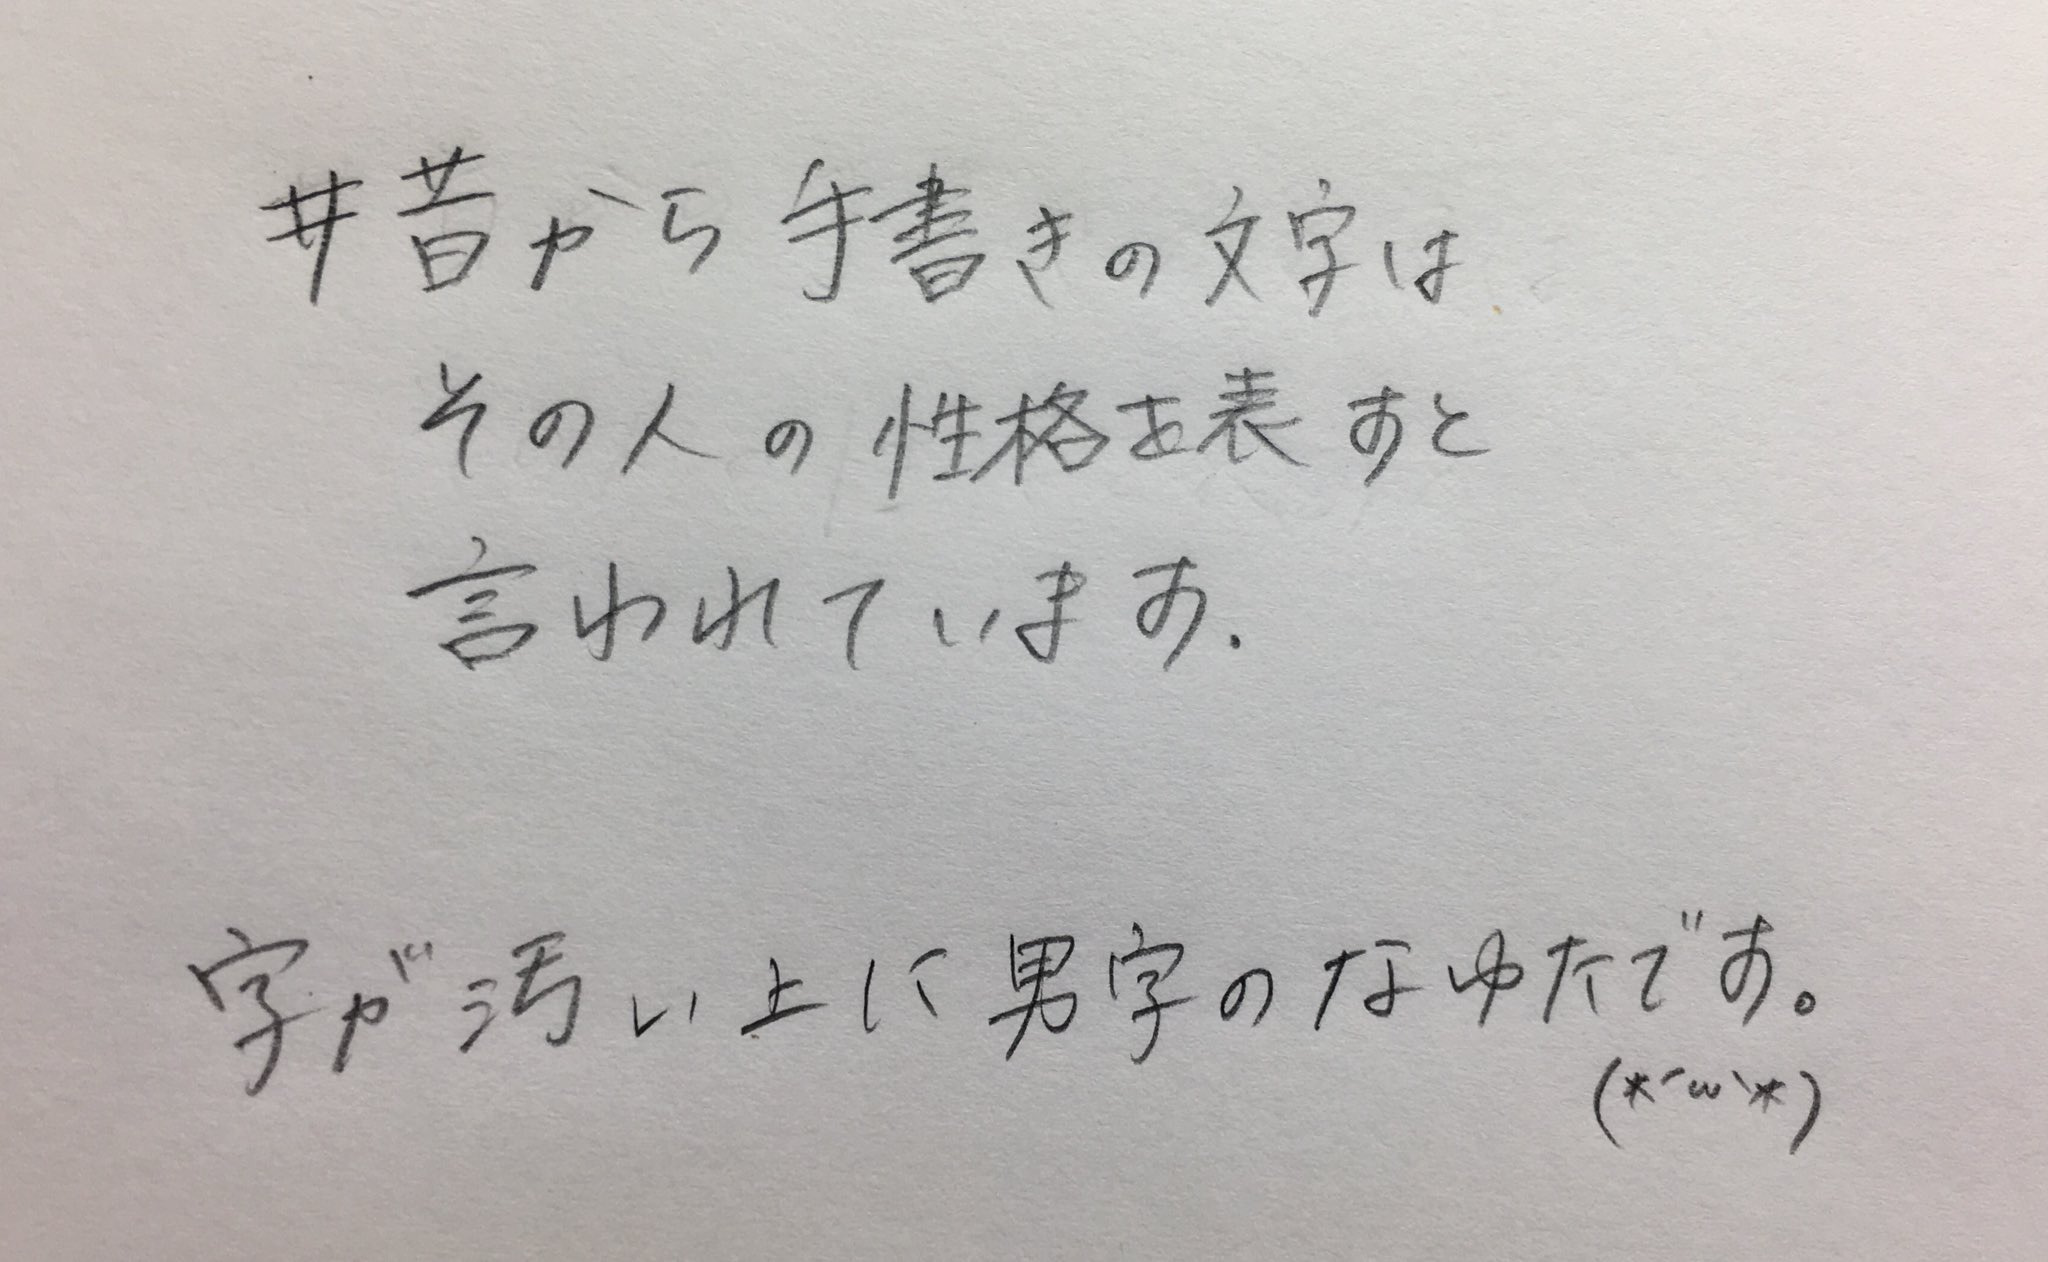 #昔から手書きの文字は
その人の性格を表すと
言われています.
字が汚い上に男字のなゆたです。
(*´ω`*)